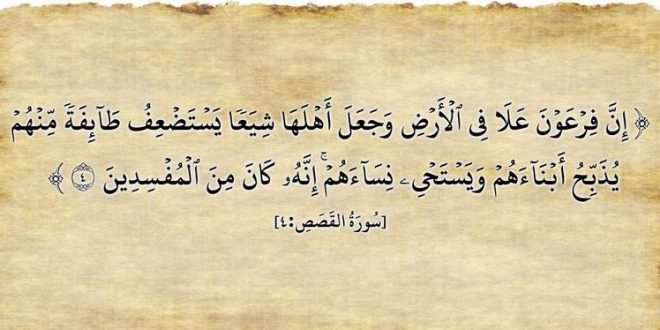 ﴿ إِنَّ فِرْعَوْنَ عَلَا فِي ٱلْأَرْضِ وَجَعَلَ أَهْلَهَا شِيَعًا يَسْتَضْعِفُ طَآئِفَةً مِّنْهُمْ
يُذَبِّحُ أَبْنَآءَهُمْ وَيَسْتَحْيِۦ نِسَآءَهُمْ ۚ إِنَّهُۥ كَانَ مِنَ ٱلْمُفْسِدِينَ ۝٤ ﴾
[سُورَةُ القَصَصِ:٤]